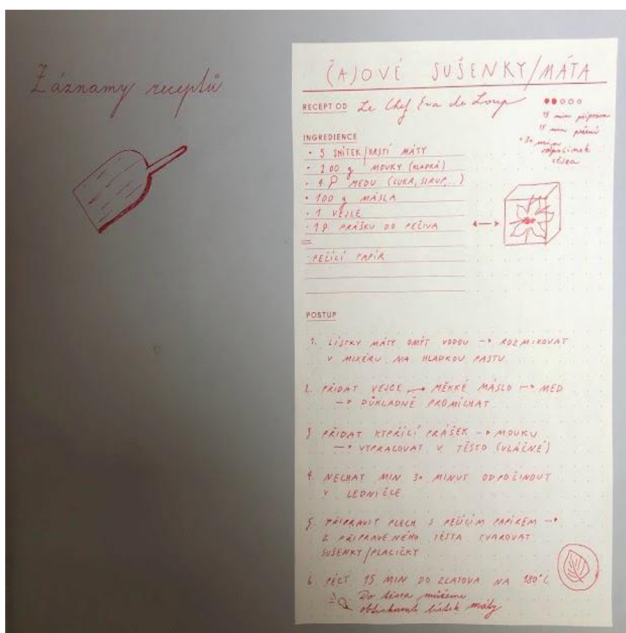 Záznamy receptů
ČAJOVÉ SUŠENKY/MÁTA
RECEPT OD Le Chef Eva de Loup
15 min příprava
15 min pečení
+ 30 min
odpočinek
těsta
INGREDIENCE
• 5 SNÍTEK/HRSTÍ MÁTY
• 200 g MOUKY (HLADKÁ)
• MEDU (CUKR, SIRUP...)
• 100 g MÁSLA
• 1 VEJCE
• PRÁŠKU DO PEČIVA
PEČÍCÍ PAPÍR
POSTUP
1. LÍSTKY MÁTY OMÝT VODOU → ROZMIXOVAT
V MIXÉRU NA HLADKOU PASTU
2. PŘIDAT VEJCE → MĚKKÉ MÁSLO → MED
→ DŮKLADNĚ PROMÍCHAT
3. PŘIDAT KYPŘÍCÍ PRÁŠEK → MOUKU
→ VYPRACOVAT V TĚSTO (VLÁČNÉ)
4. NECHAT MIN 30 MINUT ODPOČINOUT
V LEDNIČCE
5. PŘIPRAVIT PLECH S PEČÍCÍM PAPÍREM →
Z PŘIPRAVENÉHO TĚSTA TVAROVAT
SUŠENKY/PLACIČKY
6. PÉCT 15 MIN DO ZLATOVA NA 180°C
Do těsta můžeme
obtisknout lístek máty